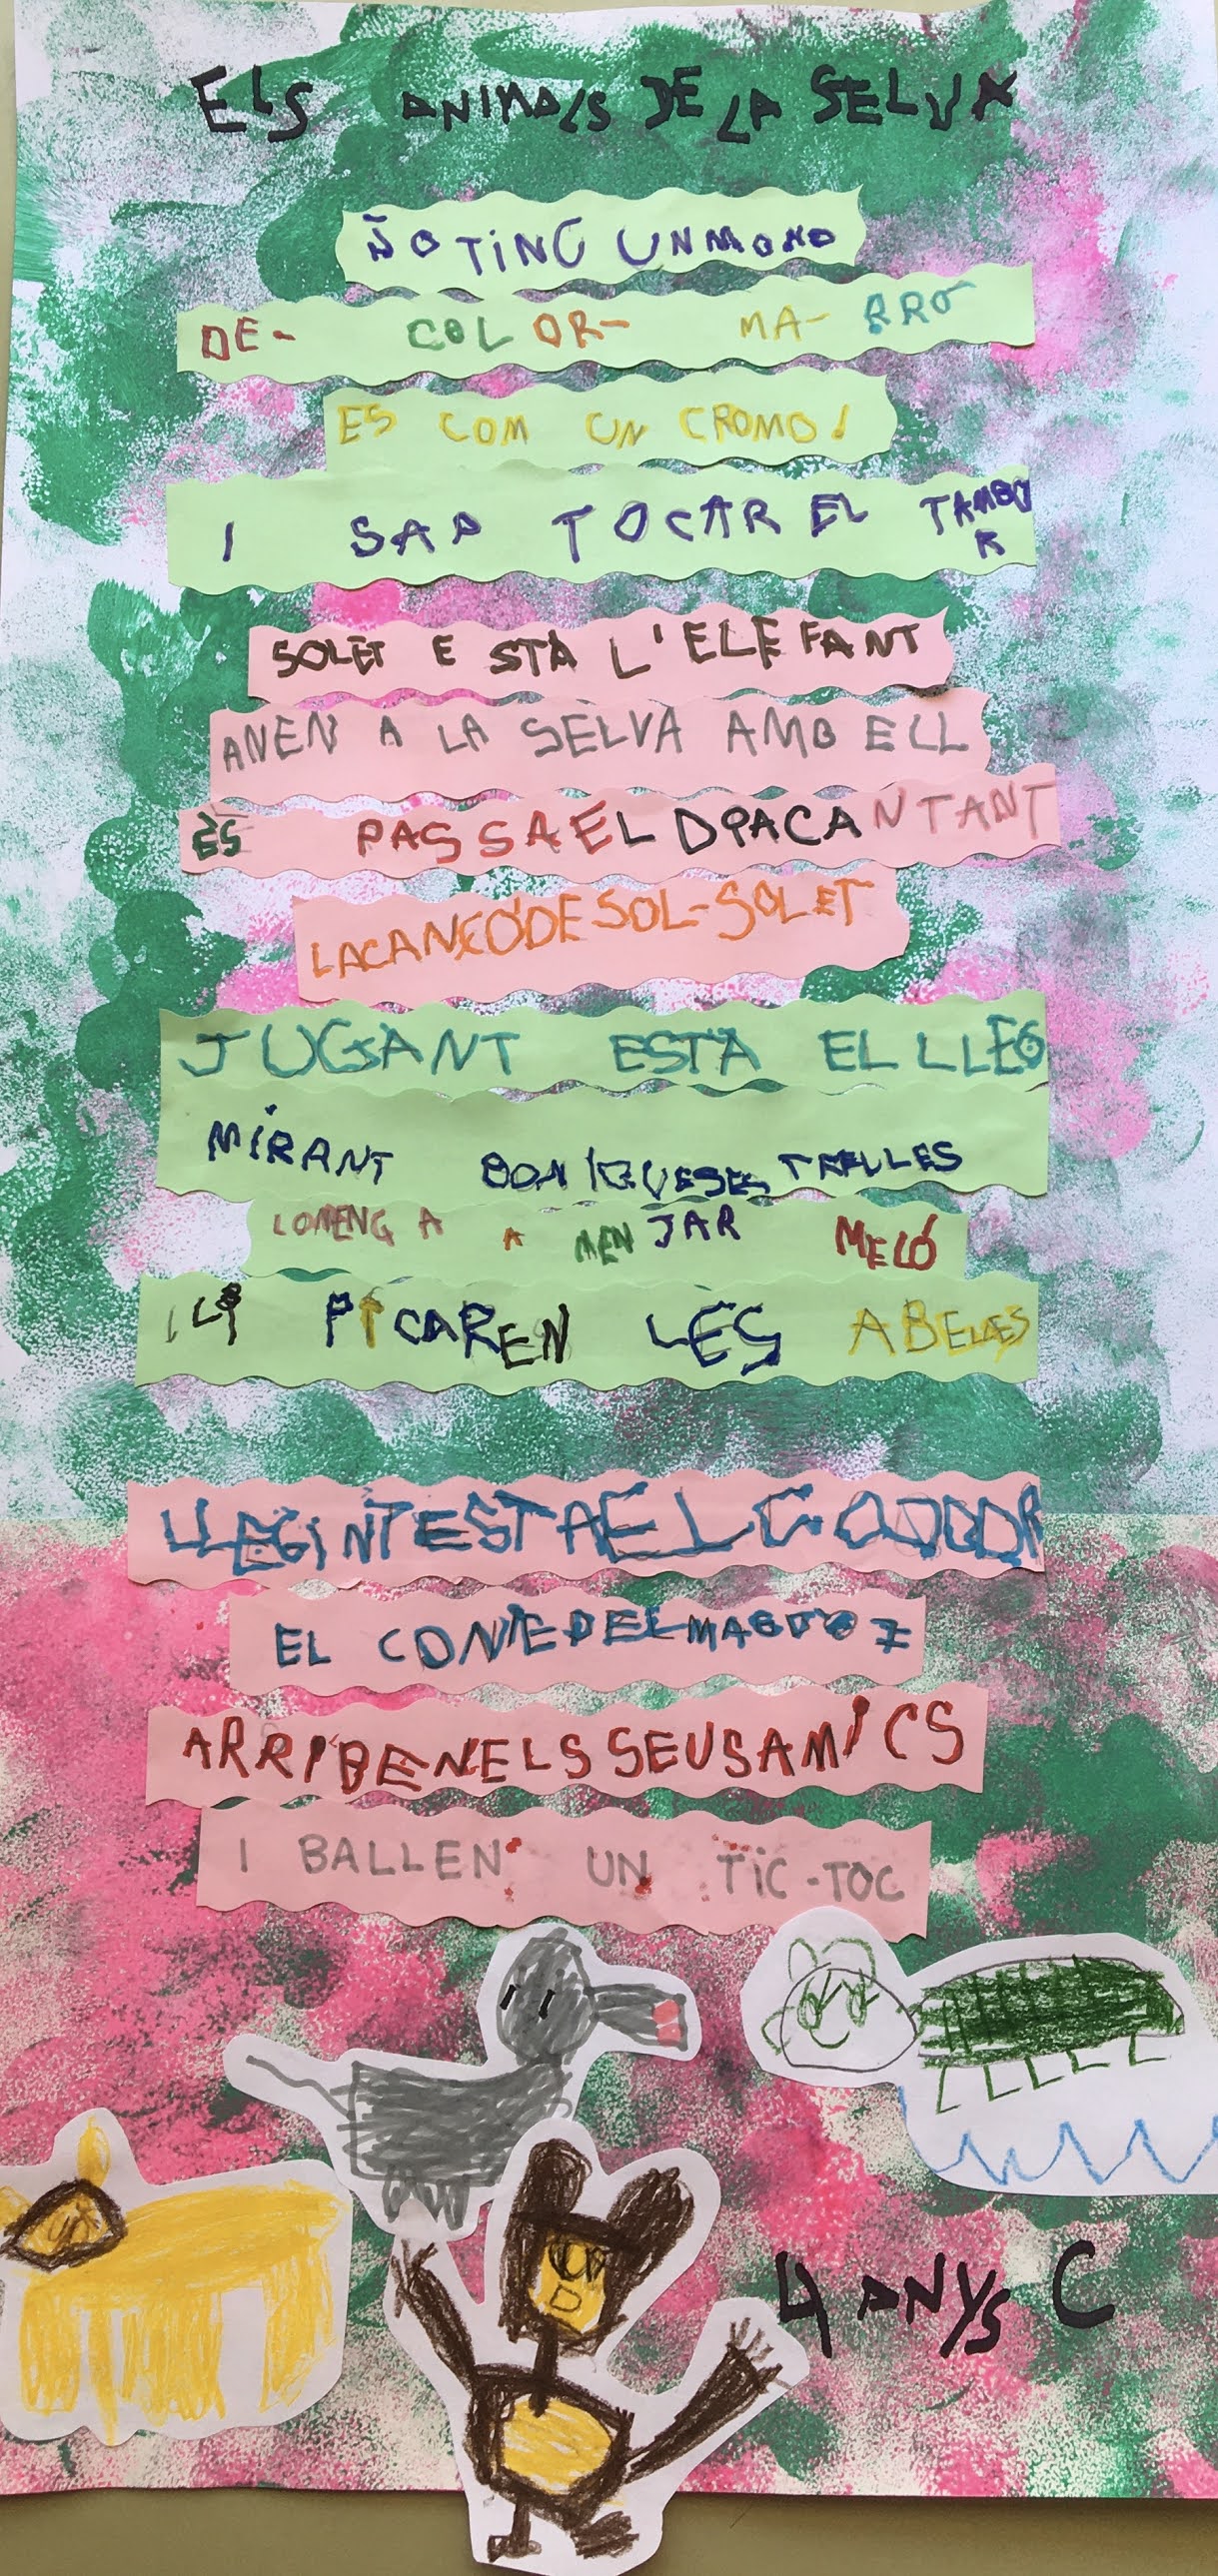 ELS ANIMALS DE LA SELVA
JO TINC UN MONO
DE- COLOR- MA- RRÓ
ES COM UN CROMO!
I SAP TOCAR EL TAMBOR
SOLET ESTÀ L'ELEFANT
ANEN A LA SELVA AMB ELL
ÉS PASSA EL DIA CANTANT
LA CANÇÓ DE SOL-SOLET
JUGANT ESTÀ EL LLEÓ
MIRANT BONIQUES ESTRELLES
COMENÇA A MENJAR MELÓ
I LI PICAREN LES ABELLES
LLEGINT ESTA EL COCODR
EL CONTE DEL MAGO OZ
ARRIBEN ELS SEUS AMICS
I BALLEN UN TIC-TOC
4 ANYS C